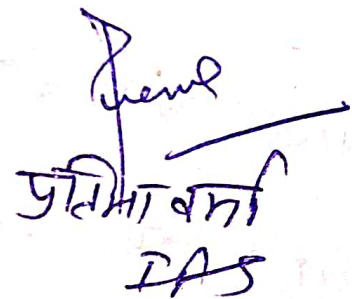 प्रतिभा वर्मा
IAS